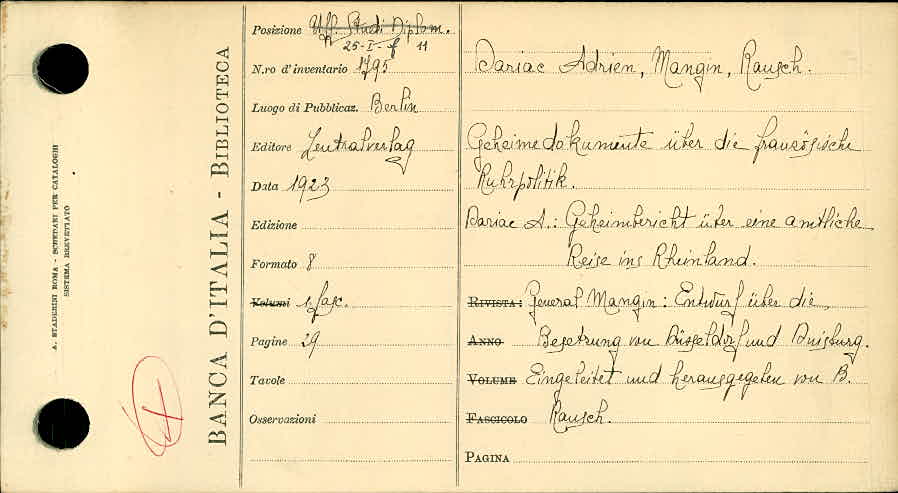 A. STADERINI ROMA - SCHEDARI PER CATALOGHI
SISTEMA BREVETTATO
BANCA D'ITALIA - BIBLIOTECA
Posizione Uff. Studi Diplom.
25-I-f 11
N.ro d'inventario 1795
Luogo di Pubblicaz. Berlin
Editore Zentralverlag
Data 1923
Edizione
Formato 8
Volumi 1 fasc.
Pagine 29
Tavole
Osservazioni
Dariac Adrien, Mangin, Rausch.
Geheimedokumente über die französische
Ruhrpolitik.
Dariac A.: Geheimbericht über eine amtliche
Reise ins Rheinland.
RIVISTA: General Mangin: Entwurf über die
ANNO Besetzung von Düsseldorf und Duisburg.
VOLUME Eingeleitet und herausgegeben von B.
FASCICOLO Rausch.
PAGINA